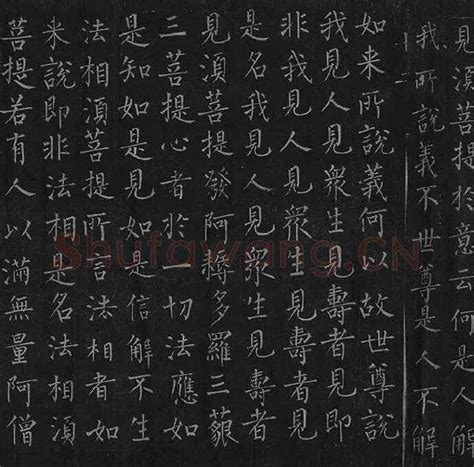 見須菩提於意云何是人解
我所說義不世尊是人不解
如来所說義何以故世尊說
我見人見衆生見壽者見即
非我見人見衆生見壽者見
是名我見人見衆生見壽者
見須菩提發阿耨多羅三藐
三菩提心者於一切法應如
是知如是見如是信解不生
法相須菩提所言法相者如
来說即非法相是名法相須
菩提若有人以滿無量阿僧
Shufawang.CN